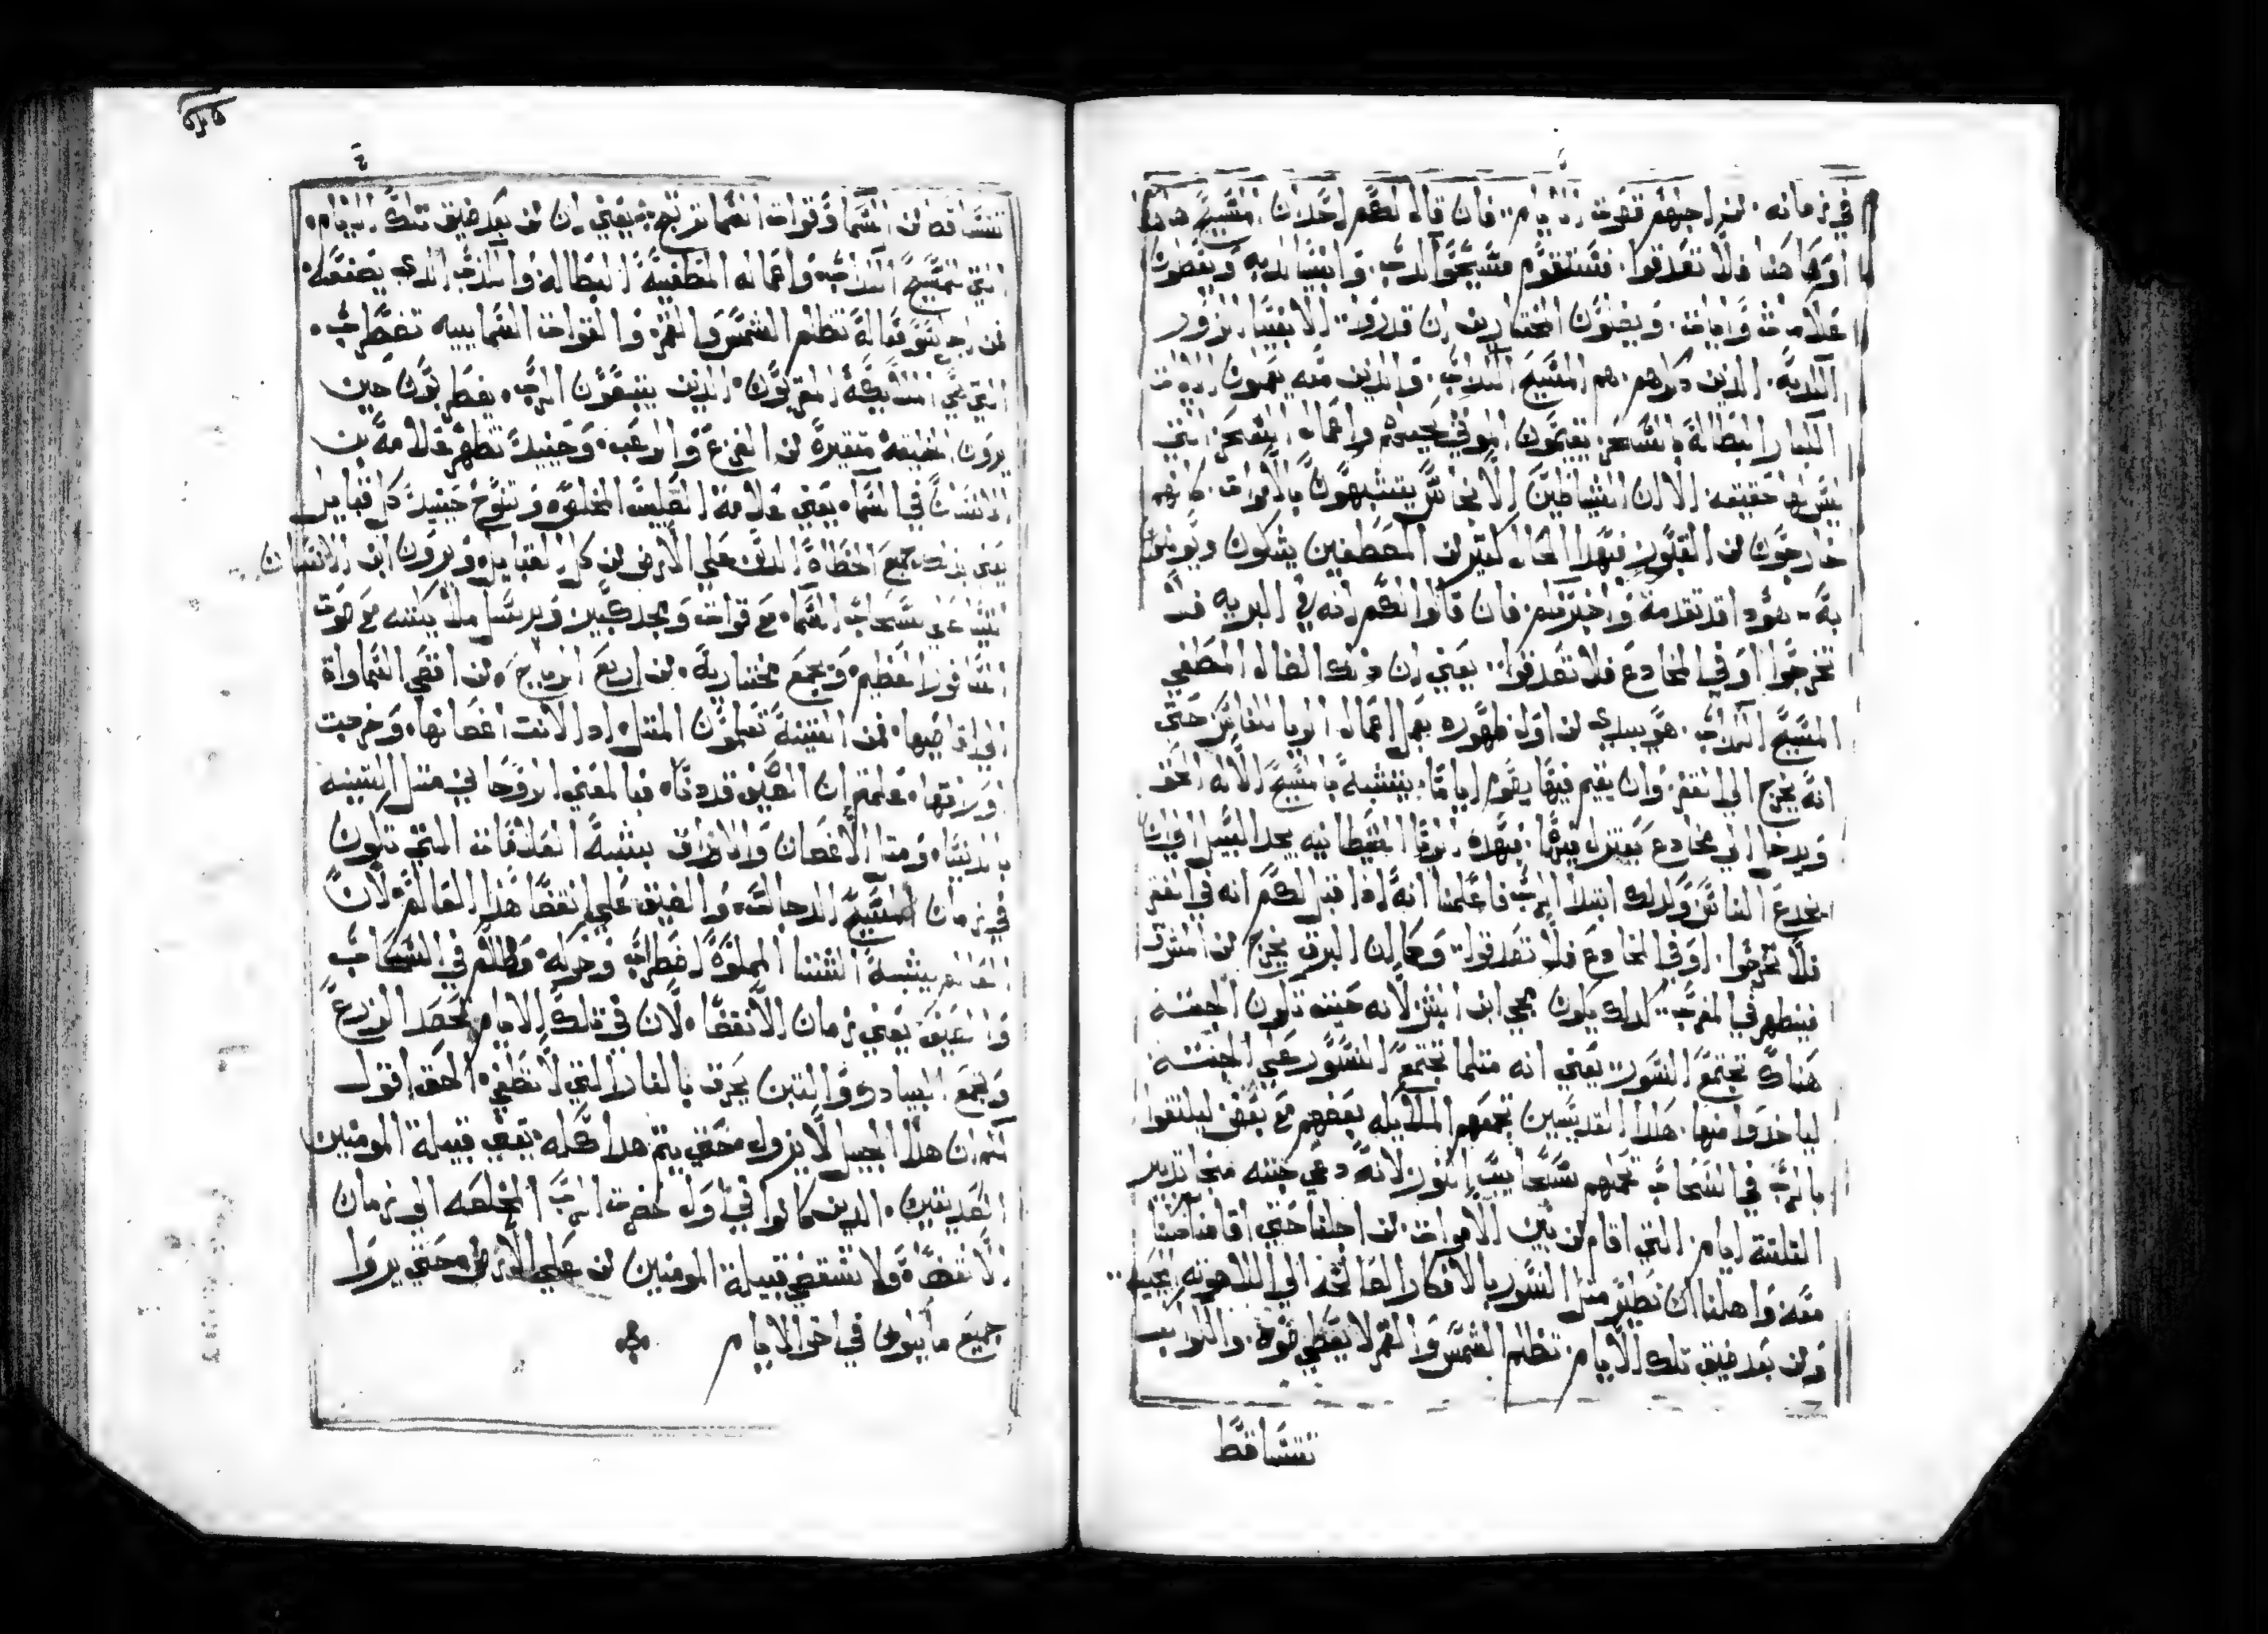 في زمانه. من اجلهم تقصر تلك الايام.. فان قال لكم احد ان المسيح هاهنا
او هاهنا فلا تصدقوا. فسيقوم مسيحوا كدب. وانبيا كدبه ويعطون
علامات وايات. ويضلون المختارين ان قدروا.. الانبيا الزور
الكدبه. الدين دكرهم. هم المسيح الكداب. والدين معه يعملون الايات
الكبار البطالة بالسحر يقيمون الموتي واعمال السحر التي
ليس لها حقيقه. الا ان الشياطين الانجاس يتشبهون بالاموات. كانهم
خارجون من القبور فبهدا الحال كثير من المصطفين يشكون ويومنون
به هودا قد تقدمة واخبرتكم. فان قالوا لكم انه في البريه فلا
تخرجوا او في المخادع فلا تصدقوا. يعني ان دلك الضال المطغي
المسيح الكداب. هو يبدي من اول ظهوره بعمل اعمال الريا للناس حتى
انه يخرج الي القفر. وان يقيم فيها يصوم اياما. يتشبه بالمسيح الاله الحق
ويدخل الي مخادع بهده الشيطانيه يجد السبيل الي ان
يخدع الناس ولدلك ابتدا الرب فاعلمنا انه ادا قيل لكم انه في القفر
فلا تخرجوا. او في المخادع فلا تصدقوا.. وكما ان البرق يخرج من المشرق
فيظهر في المغرب.. كدلك يكون مجي ابن البشر لانه حيث تكون الجثه
هناك تجتمع النسور.. يعني انه مثلما تجتمع النسور علي الجثه
لياخدوا منها. هكدا القديسين تجمعهم الملايكه بعضهم مع بعض ليلتقوا
بالرب في السحاب تحملهم سحايب النور لانه دعي جثه
الثلثة ايام. التي اقام من بين الاموات. من اجلنا حتي اقامنا
معه واهلنا ان نطير مثل النسور بالافكار الي اللاهوتيه
ومن بعد ضيق تلك الايام. تظلم الشمس والقمر لا يعطي ضوه. والكواكب
تتساقط
تتساقط من السما وقوات السما ترتج.: يعني ان من بعد ضيق تلك الايام.
التي للمسيح الكداب. واعماله المطغية البطاله والكدب الدي يصنعه.
تظلم الشمس والقمر. والقوات السماييه تضطرب.
التي هي الملايكة المقربون. الدين يتبعون الرب. يضطربون حين
يرون الخليقه متغيرة من الفزع والرعب. وحينيد تظهر علامة ابن
الانسان في السما. يعني علامة الصليب المخلص. وتنوح حينيد كل قبايل
يعني بدلك جميع الخطاه الدين علي الارض من كل القبايل. ويرون ابن الانسان
اتيا علي سحاب السما. مع قوات ومجد كبير. ويرسل ملايكته مع صوت
الصافور العظيم. ويجمع مختاريه. من اربع الرياح. من اقصي السماواة
الي اقاصيها. فمن التينة تعلمون المثل. ادا لانت اغصانها. وخرجت
اوراقها. علمتم ان الصيف قد دنا. فبالمعني الروحاني مثل التينه
بالدنيا. ومثل الاغصان والاوراق يشبه العلامات التي تكون
في زمان المسيح الدجال. والضيق علي انقضا هدا العالم. لان
العالم يشبه الشتا المملو اضطراب وحركه. وظلام في السحاب
والصيف يعني زمان الانقضا. لان في تلك الايام يحصد الزرع
ويجمع البيادر والتبن يحرق بالنار التي لا تطفي. الحق اقول
لكم ان هدا الجيل لا يزول حتي يتم هدا كله. يعني قبيلة المومنين
الصديقين. الدين كانوا في اول حضرت الرب المخلصه الي زمان
الانقضا. ولا تنقضي قبيلة المومنين من علي الارض. حتي يروا
جميع ما يكون في اخر الايام